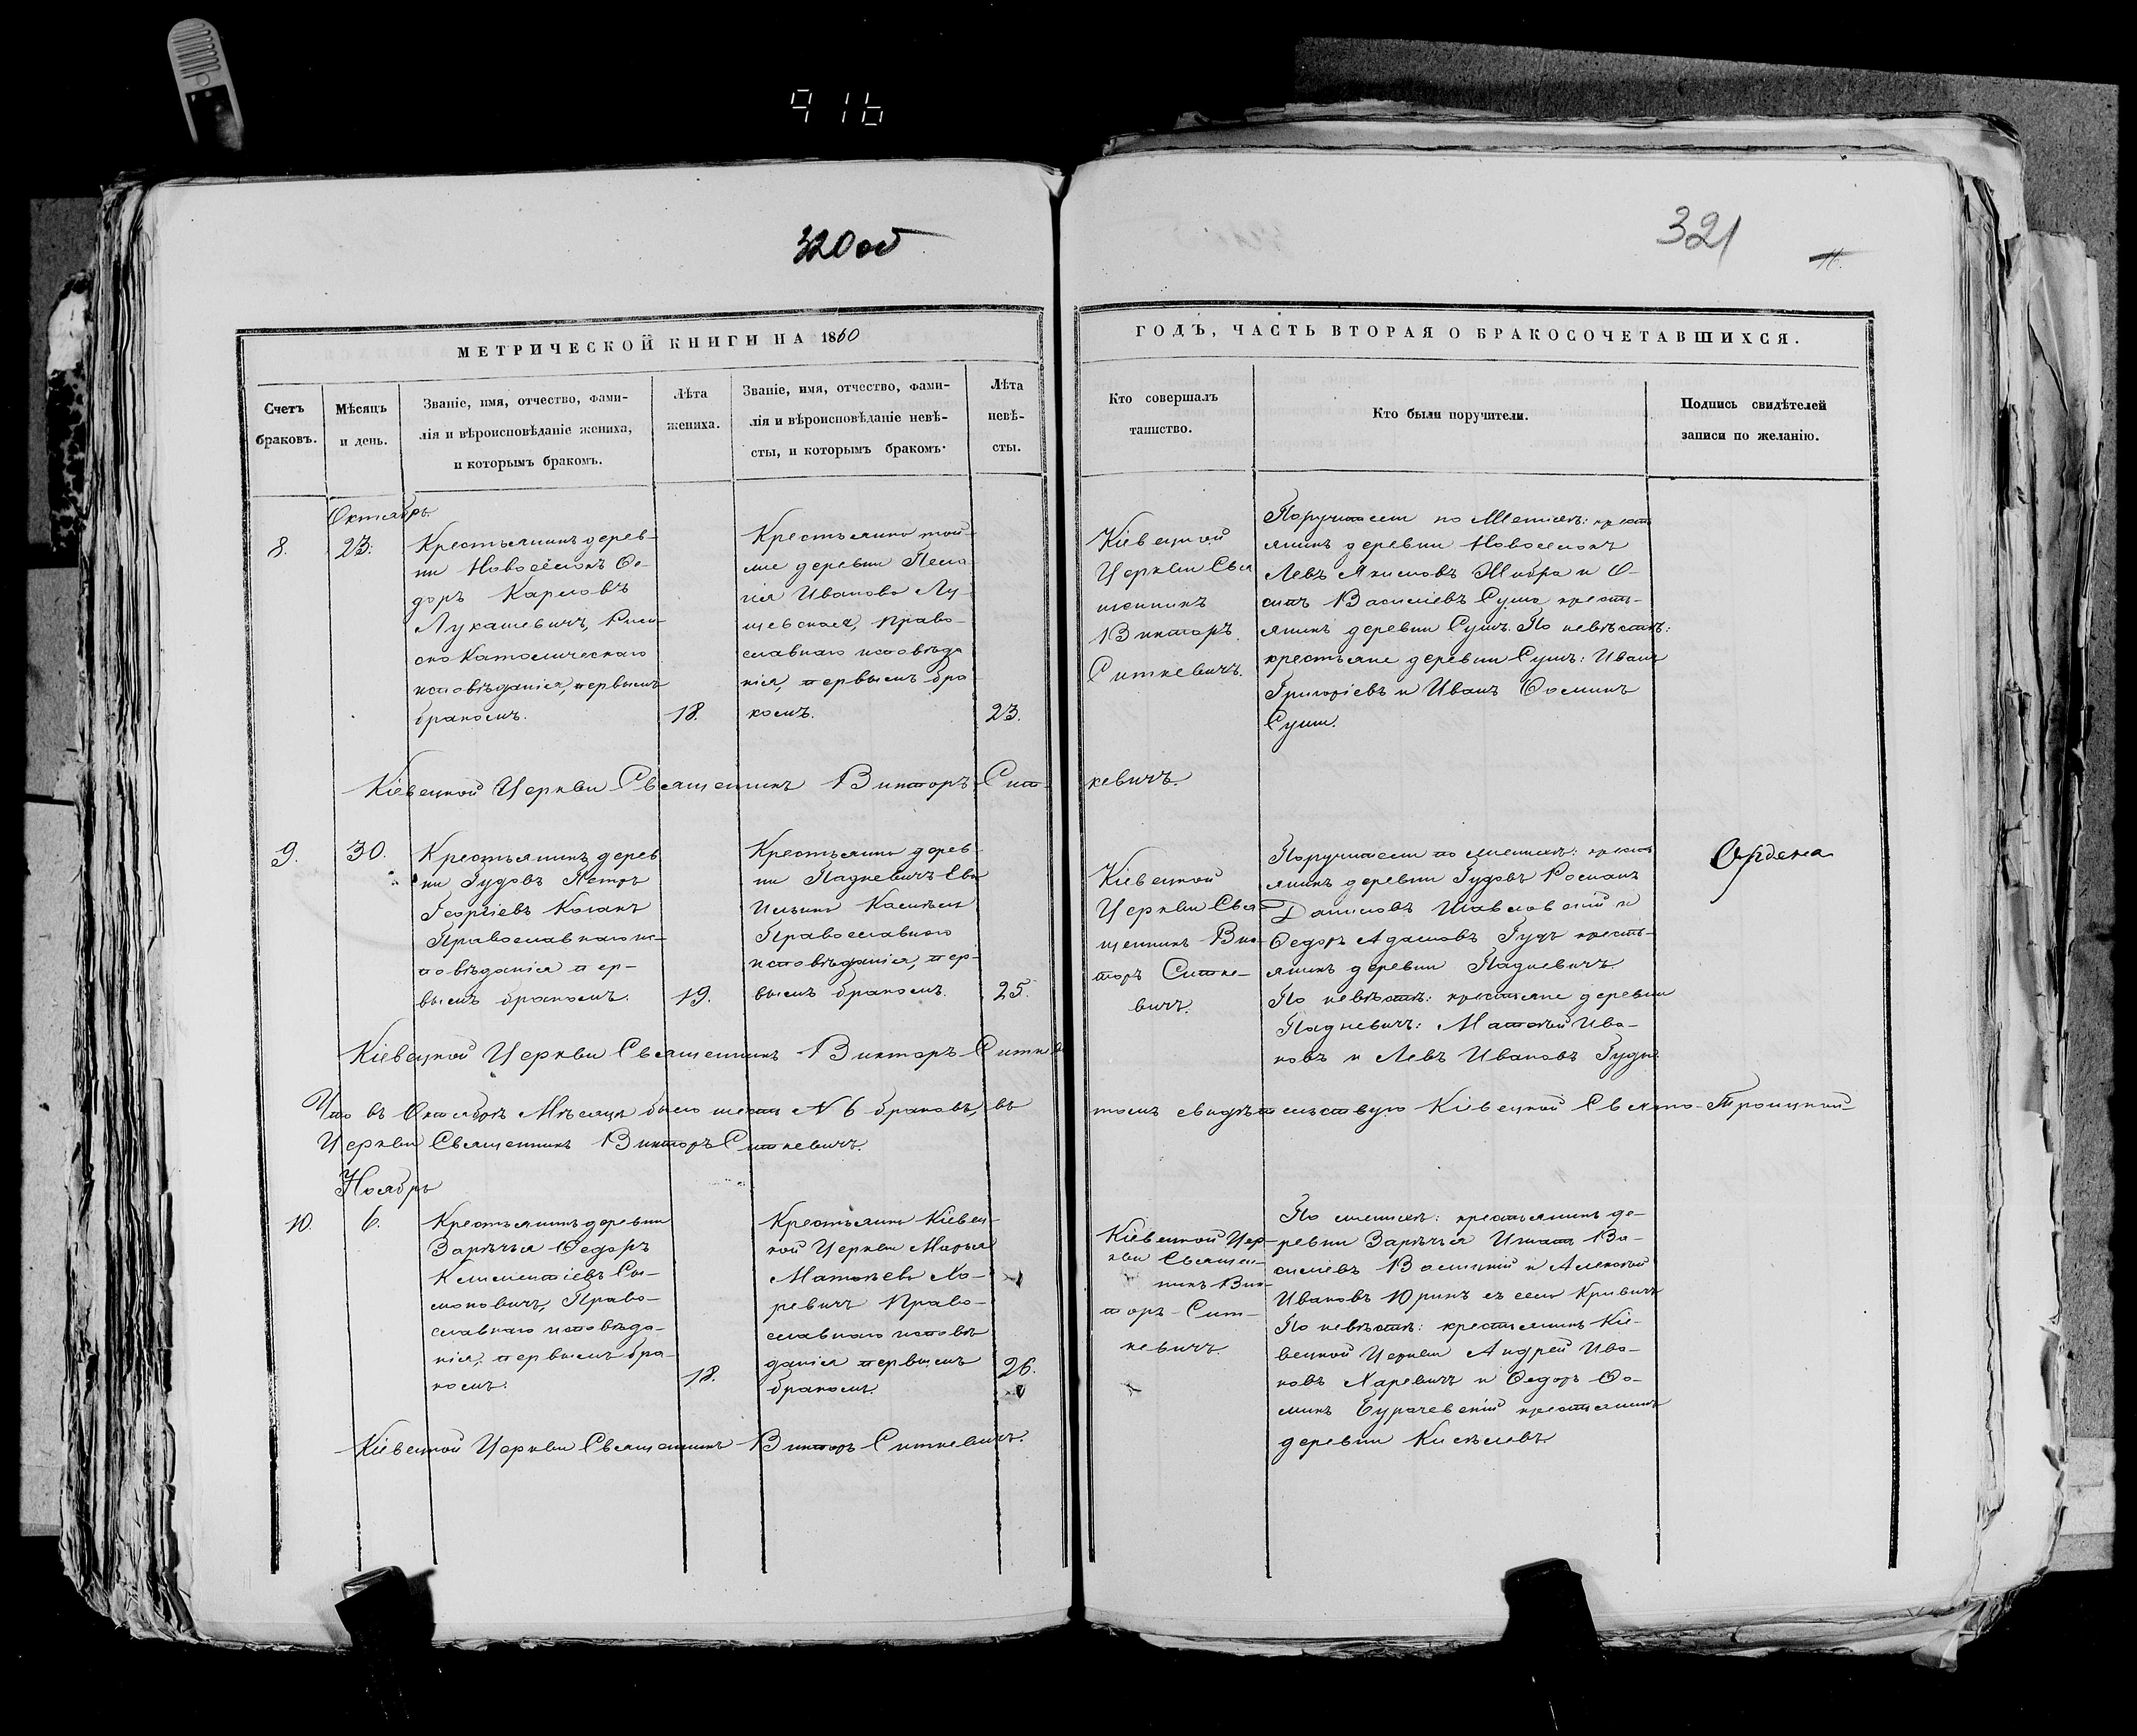 916
320 об
321
11.
МЕТРИЧЕСКОЙ КНИГИ НА 1860
ГОДЪ, ЧАСТЬ ВТОРАЯ О БРАКОСОЧЕТАВШИХСЯ.
Счетъ
браковъ.
Мѣсяцъ
и день.
Званіе, имя, отчество, фами-
лія и вѣроисповѣданіе жениха,
и которымъ бракомъ.
Лѣта
жениха.
Званіе, имя, отчество, фами-
лія и вѣроисповѣданіе невѣ-
сты, и которымъ бракомъ.
Лѣта
невѣ-
сты.
Кто совершалъ
таинство.
Кто были поручители.
Подпись свидѣтелей
записи по желанію.
Октябрь.
8.
23.
Крестьянинъ дерев-
ни Новоселокъ Ѳе-
доръ Карповъ
Лукашевичъ, Рим-
ско Католическаго
исповѣданія, первымъ
бракомъ.
18.
Крестьянка той-
же деревни Пела-
гія Иванова Лу-
щевская, право-
славнаго исповѣда
нія, первымъ бра
комъ.
23.
Кіевецкой
Церкви Свя
щенникъ
Викторъ
Ситкевичъ.
Поручители по Женихѣ: кресть
янинъ деревни Новоселокъ
Левъ Якимовъ и О-
сипъ Василіевъ Суша кресть-
янинъ деревни Сушъ. По невѣстѣ:
крестьяне деревни Сушъ: Иванъ
Григоріевъ и Иванъ Ѳоминъ
Суши.
Кіевецкой Церкви Священникъ Викторъ Сит-
кевичъ.
9.
30.
Крестьянинъ дерев
ни Гудовъ Петръ
Георгіевъ Козакъ
Православнаго ис-
повѣданія пер-
вымъ бракомъ.
19.
Крестьянка дерев-
ни Падневичъ Ева
Ильина
Православнаго
исповѣданія, пер-
вымъ бракомъ.
25.
Кіевецкой
Церкви Свя-
щенникъ Вик-
торъ Ситке-
вичъ.
Поручители по женихѣ: кресть
янинъ деревни Гудовъ Романъ
Даниловъ Шавловскій и
Ѳедоръ Адамовъ Гудъ кресть-
янинъ деревни Падневичъ.
По невѣстѣ: крестьяне деревни
Падневичъ: Матѳей Ива-
новъ и Левъ Ивановъ Гуды.
Кіевецкой Церкви Священникъ Викторъ Ситкев
Что въ Октябрѣ Мѣсяцѣ было шесть № 6 браковъ, въ
томъ свидѣтельствую Кіевецкой Свято-Троицкой
Церкви Священникъ Викторъ Ситкевичъ.
Ноябрь
10.
6.
Крестьянинъ деревни
Зарѣчья Ѳедоръ
Климентіевъ Си-
моновичъ, Право-
славнаго исповѣда-
нія, первымъ бра-
комъ.
18.
Крестьянка Кіевец-
кой Церкви Марья
Матѳѣева Ха-
ревичъ Право-
славнаго исповѣ
данія первымъ
бракомъ.
26.
Кіевецкой Цер-
кви Священ-
никъ Вик-
торъ Сит-
кевичъ.
По женихѣ: крестьянинъ де-
ревни Зарѣчья Игнатъ Ва-
силіевъ и Алексѣй
Ивановъ Юринъ съ села Кривичъ
По невѣстѣ: крестьянинъ Кіе-
вецкой Церкви Андрей Ива-
новъ Харевичъ и Ѳедоръ Ѳо-
минъ Бурачевскій крестьянинъ
деревни Киселевъ.
Кіевецкой Церкви Священникъ Викторъ Ситкевичъ.